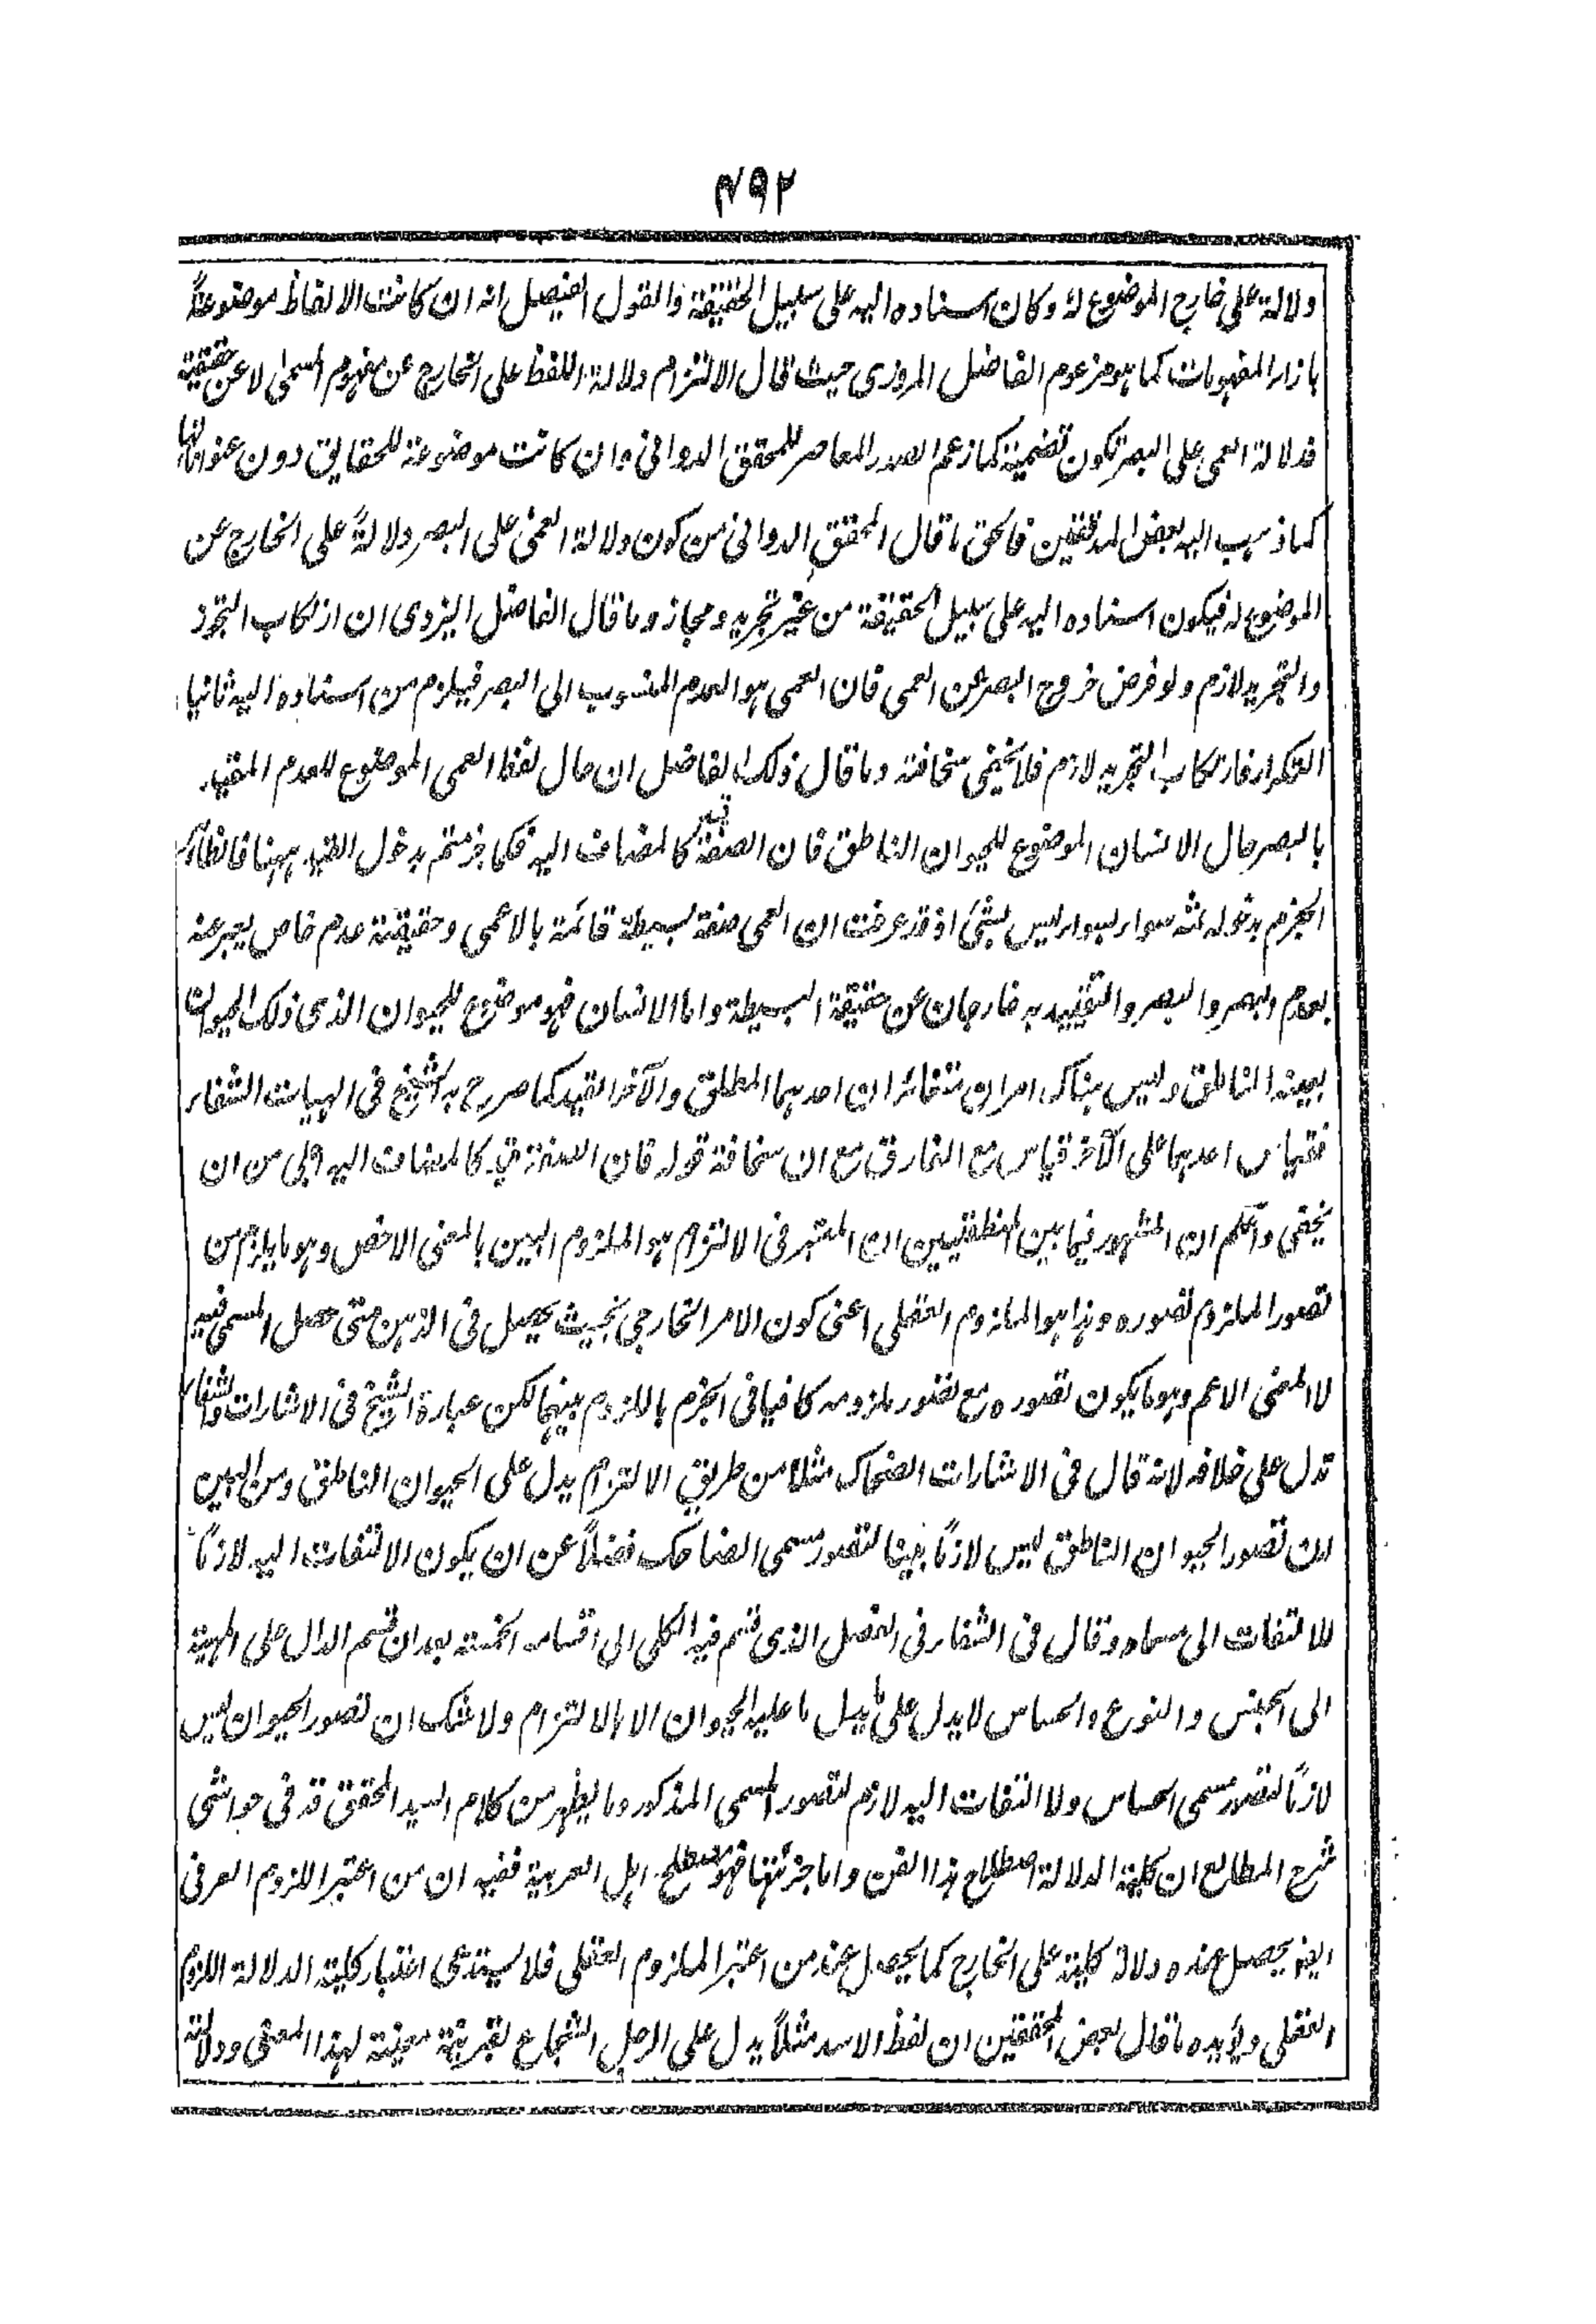 ۴۹۲
دلالة على خارج الموضوع له وكان اسناده اليه على سبيل الحقيقة والقول الفيصل انه ان كانت الالفاظ موضوعة
بازاء المفهومات كما هو مزعوم الفاضل المروزى حيث قال الالتزام دلالة اللفظ على الخارج عن مفهوم المسمى لا عن حقيقته
فدلالة العمى على البصر تكون تضمنية كما زعم الصدر المعاصر للمحقق الدوانى وان كانت موضوعة للحقايق دون عنواناتها
كما ذهب اليه بعض المدققين فالحق ما قال المحقق الدوانى من كون دلالة العمى على البصر دلالةً على الخارج عن
الموضوع له فيكون اسناده اليه على سبيل الحقيقة من غير تجريد ومجاز وما قال الفاضل اليزدى ان ارتكاب التجوز
والتجريد لازم ولو فرض خروج البصر عن العمى فان العمى هو العدم المنسوب الى البصر فيلزم من اسناده اليه ثانيا
التكرار فارتكاب التجريد لازم فلا يخفى سخافته وما قال ذلك الفاضل ان حال لفظ العمى الموضوع للعدم المقيد
بالبصر حال الانسان الموضوع للحيوان الناطق فان الصفة قيد كالمضاف اليه فكما جزمتم بدخول القيد ههنا فالظاهر
الجزم بدخوله ثمه سواء بسواء ليس بشئ اذ قد عرفت ان العمى صفة بسيطة قائمة بالاعمى وحقيقته عدم خاص يعبر عنه
بعدم البصر والبصر والتقييد به خارجان عن حقيقة البسيطة واما الانسان فهو موضوع للحيوان الذى ذلك الحيوان
بعينه الناطق وليس هناك امران متغائران احدهما المطلق والآخر القيد كما صرح به الشيخ فى الهيات الشفاء
فقياس احدهما على الآخر قياس مع الفارق مع ان سخافة قوله فان الصفة قيد كالمضاف اليه اجلى من ان
يخفى واعلم ان المشهور فيما بين المنطقيين ان المعتبر فى الالتزام هو الملزوم البين بالمعنى الاخص وهو ما يلزم من
تصور الملزوم تصوره وهذا هو الملزوم العقلى اعنى كون الامر الخارجى بحيث يحصل فى الذهن متى حصل المسمى فيه
لا المعنى الاعم وهو ما يكون تصوره مع تصور ملزومه كافيا فى الجزم باللزوم بينهما لكن عبارة الشيخ فى الاشارات والشفاء
تدل على خلافه لانه قال فى الاشارات الضحاك مثلاً من طريق الالتزام يدل على الحيوان الناطق ومن البين
ان تصور الحيوان الناطق ليس لازماً بينا لتصور مسمى الضاحك فضلاً عن ان يكون الالتفات اليه لازماً
للالتفات الى مسماه وقال فى الشفاء فى الفصل الذى قسم فيه الكلى الى اقسامه الخمسة بعد ان قسم الدال على المهية
الى الجنس والنوع والحساس لا يدل على ما يدل ما عليه الحيوان الا بالالتزام ولا شك ان تصور الحيوان ليس
لازماً لتصور مسمى الحساس ولا التفات اليه لازم لتصور المسمى المذكور وما يظهر من كلام السيد المحقق قد فى حواشى
شرح المطالع ان كلية الدلالة اصطلاح هذا الفن واما جزئيتها فهو مصطلح اهل العربية ففيه ان من اعتبر اللزوم العرفى
ايضا يحصل عنده دلالة كلية على الخارج كما يحصل عند من اعتبر الملزوم العقلى فلا يستدعى اعتبار كلية الدلالة اللزوم
العقلى ويؤيده ما قال بعض المحققين ان لفظ الاسد مثلاً يدل على الرجل الشجاع بقرينة معينة لهذا المعنى ودلالته